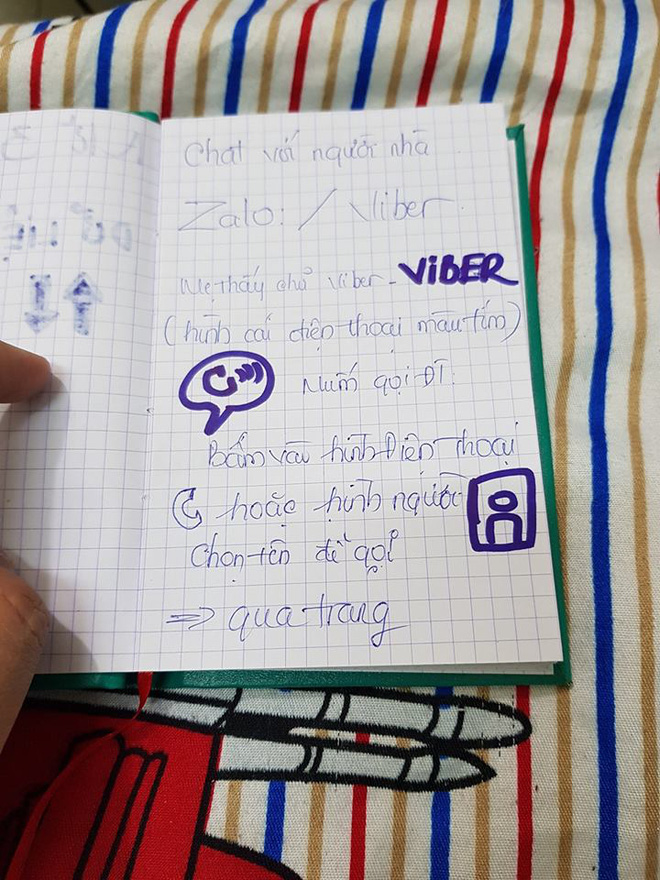 Chat với người nhà
Zalo: / Viber.
Mẹ thấy chữ Viber - VIBER
(hình cái điện thoại màu tím)
Muốn gọi ĐT:
Bấm vào hình Điện thoại
hoặc hình người
Chọn tên để gọi
⇒ qua trang